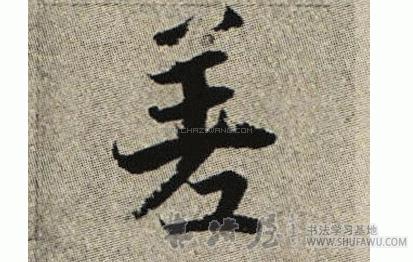 差
WWW.CHAZIWANG.COM
书法屋
书法学习基地
WWW.SHUFAWU.COM